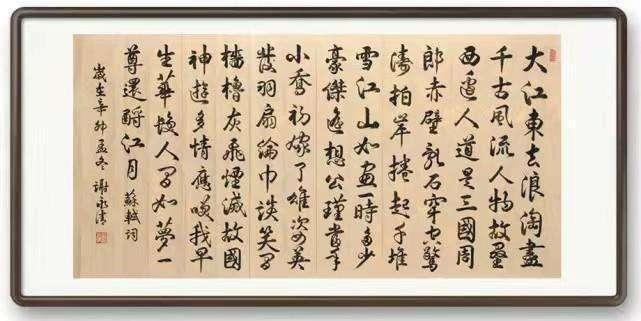 大江東去浪淘盡
千古風流人物故壘
西邊人道是三國周
郎赤壁亂石穿空驚
濤拍岸捲起千堆
雪江山如畫一時多少
豪傑遙想公瑾當年
小喬初嫁了雄姿英
發羽扇綸巾談笑間
檣櫓灰飛煙滅故國
神遊多情應笑我早
生華髮人間如夢一
尊還酹江月 蘇軾詞
歲在辛卯孟冬 謝永清